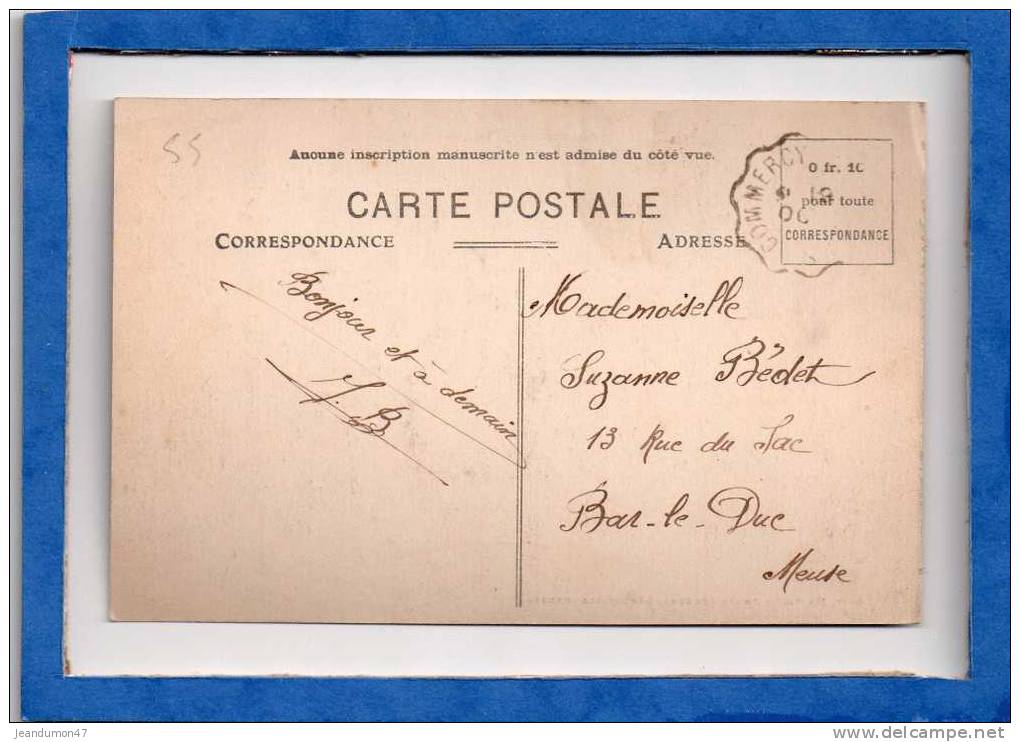 55
Aucune inscription manuscrite n'est admise du côté vue.
CARTE POSTALE
CORRESPONDANCE
ADRESSE
COMMERCY
0 fr. 10
pour toute
CORRESPONDANCE
Bonjour et à demain
J. B
Mademoiselle
Suzanne Bédet
13 Rue du Jac
Bar-le-Duc
Meuse
jeandumon47
www.delcampe.net